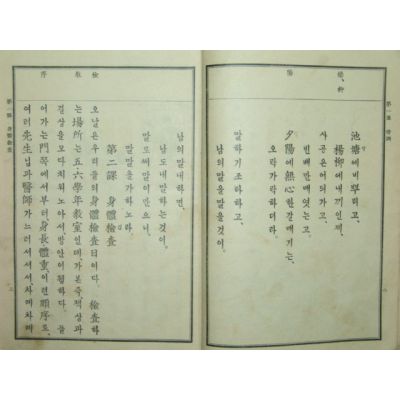 第一課 時調
池塘에비뿌리고,
楊柳에내끼인제,
사공은어듸가고,
빈배만매엿는고.
夕陽에無心한갈매기는,
오락가락하더라.
말하기조타하고,
남의말을말을것이,
남의말내하면,
남도내말하는것이,
말로써말이만으니,
말말을가하노라.
檢 敎 序
第二課 身體檢査
오날은우리들의身體檢査日이다. 檢査하
는場所는五六學年敎室인데,가본즉책상과
걸상을모다치워노아서,방안이휑하다. 들
어가는門쪽에서부터身長體重이런順序로,
여러先生님과醫師가느러서서서,차례차례
第二課 身體檢査